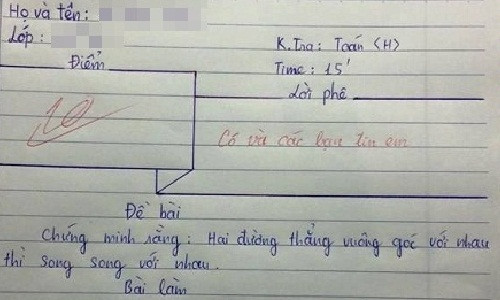 Họ và tên:
Lớp:
K.Tra: Toán (H)
Time: 15'
Điểm
Lời phê
10
Cô và các bạn tin em
Đề bài
Chứng minh rằng: Hai đường thẳng vuông góc với nhau
thì song song với nhau.
Bài làm